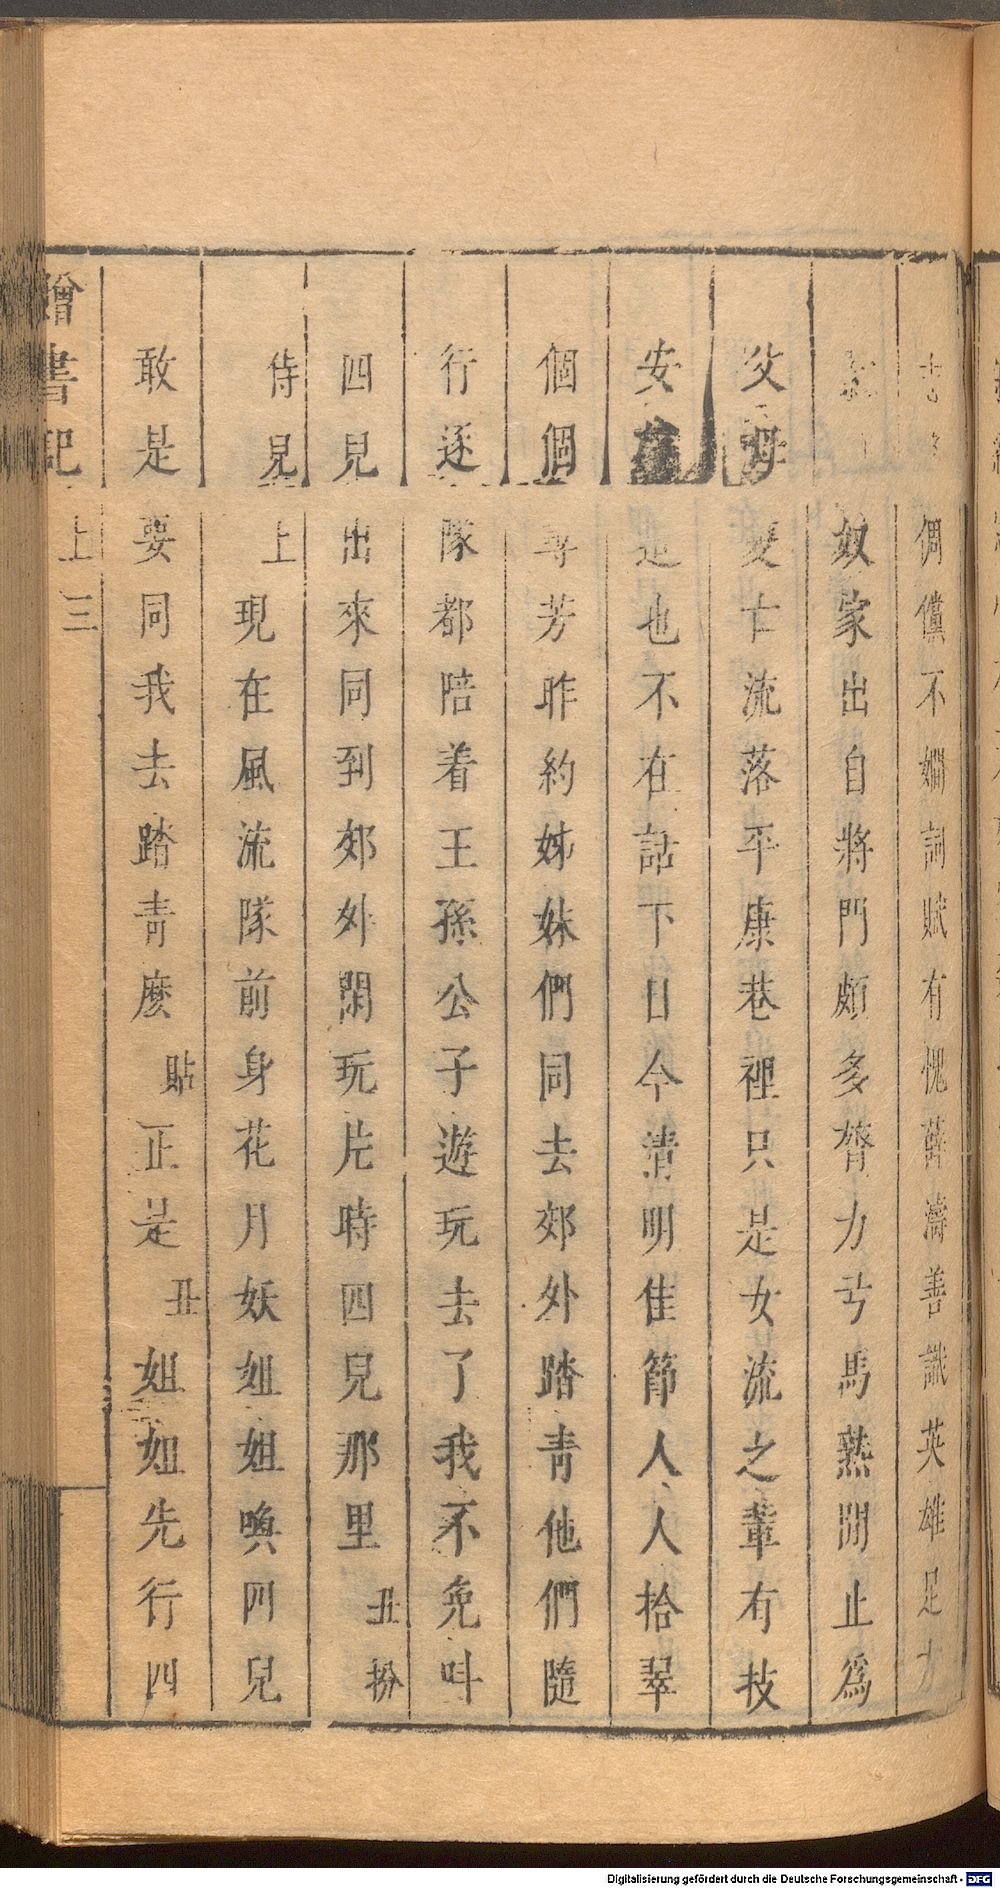 倜儻不嫺詞賦有愧薛濤善識英雄足方
奴家出自將門頗多膂力弓馬熟閒止爲
父母雙亡流落平康巷裡只是女流之輩有技
安在這也不在話下目今清明佳節人人拾翠
個個尋芳昨約姊妹們同去郊外踏青他們隨
行逐隊都陪着王孫公子遊玩去了我不免叫
四兒出來同到郊外閑玩片時四兒那里丑扮
侍兒上現在風流隊前身花月妖姐姐喚四兒
敢是要同我去踏青麽貼正是丑姐姐先行四
贈書記
上三
Digitalisierung gefördert durch die Deutsche Forschungsgemeinschaft - DFG